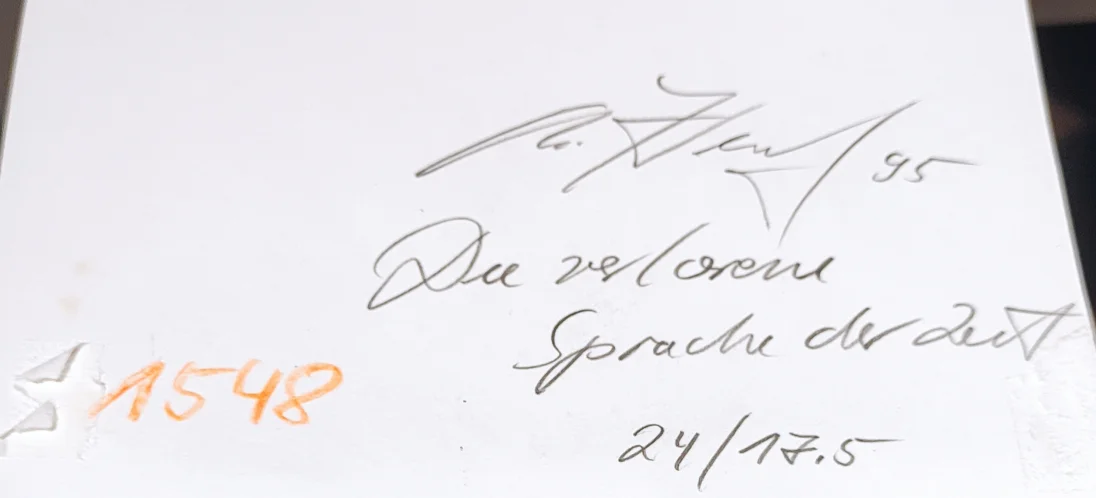 95
Die verlorene
Sprache der Zeit
1548
24/17.5